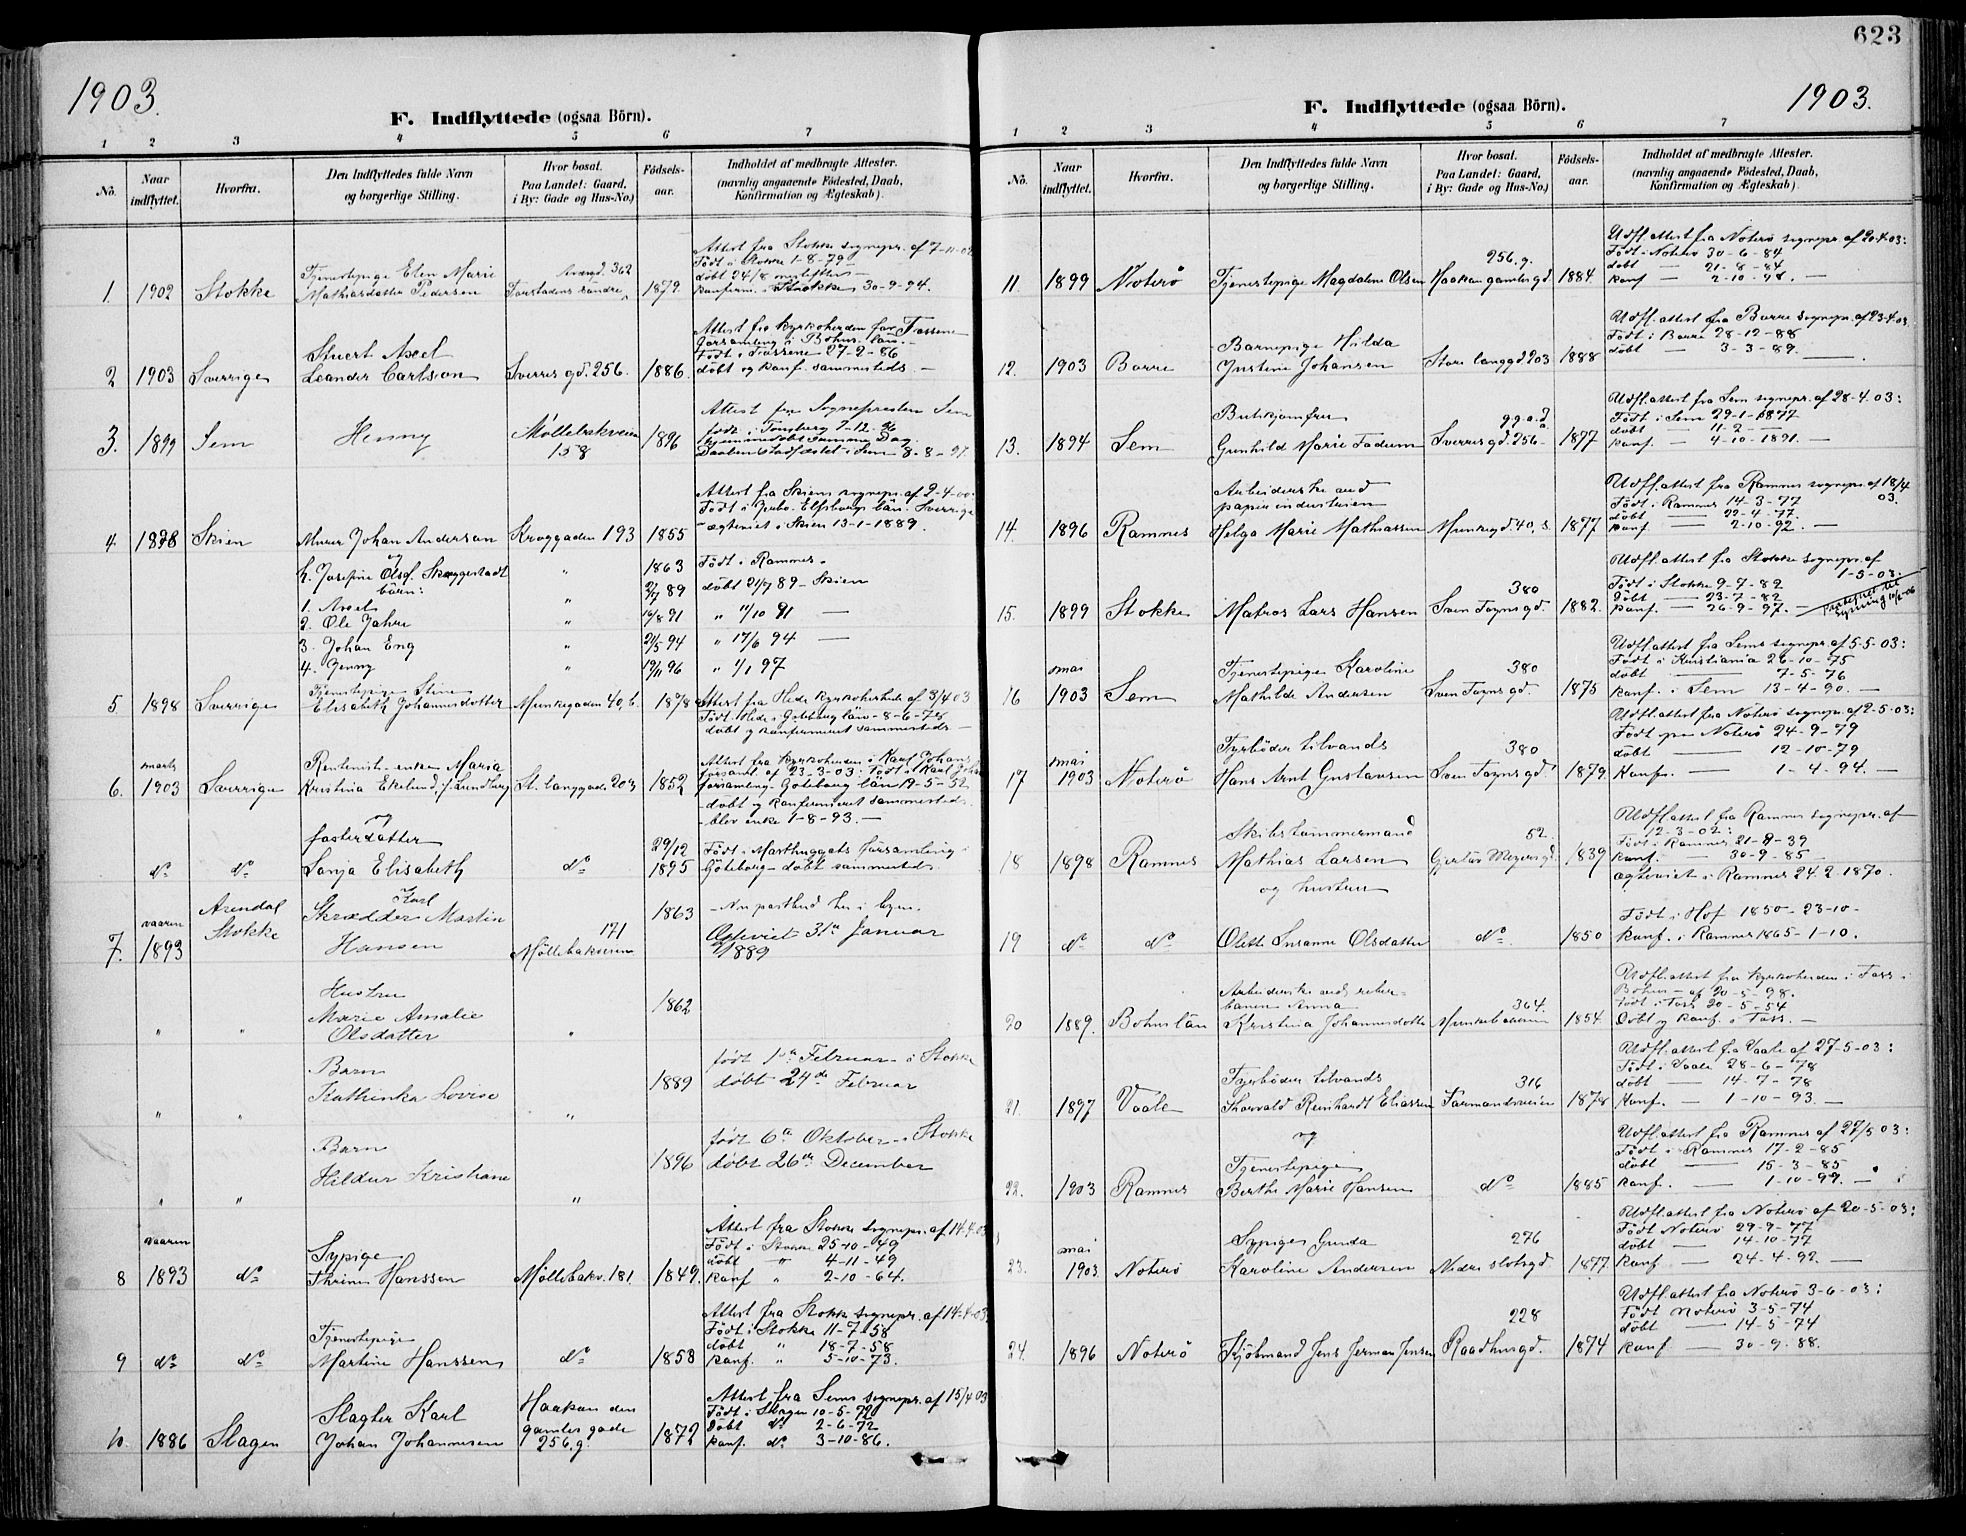 623
1903.
F. Indflyttede (ogsaa Börn).
1 2 3 4 5 6 7
No. Naar indflyttet. Hvorfra. Den Indflyttedes fulde Navn og borgerlige Stilling. Hvor bosat. Paa Landet: Gaard, i By: Gade og Hus-No.) Fødsels-aar. Indholdet af medbragte Attester. (navnlig angaaende Fødested, Daab, Konfirmation og Ægteskab).
Attest fra Stokke sognepr. af 7-11-02
Født i Stokke 1-8-79
Tjenestepige Elen Marie 362 døbt 24/8
1. 1902 Stokke Mathiasdatter Pedersen 1879. konfirm. i Stokke 30-9-94.
Attest fra kyrkoherden for Tossene
forsamling i Bohus län.
Stuert Axel Født i Tossene 27-2-86
2 1903 Sverrige Leander Carlsson Sverres gd. 256. 1886. døbt og konf. sammesteds.
Attest fra Sognepresten Sem
født i Tønsberg 7-12-96
3. 1899 Sem Henny Møllebakveien 158 1896 hjemmedøbt samme Dag.
Daaben stadfæstet i Sem 8-8-97.
Attest fra Skiens sognepr. af 2-4-00.
Født i Elfsborgs län. Sverrige
4. 1898 Skien Murer Johan Anderson Kroggaden 193 1855 ægteviet i Skien 13-1-1889.
og
h. Josefine Olsd. Skaggestadt " 1863 Født i Ramnes.
børn:
1. Axel " 2/7 89 døbt 21/7 89 - Skien
2. Ole Jahre " 14/8 91 " 11/10 91
3. Johan Eng " 21/5 94 " 17/6 94
4. Jenny " 19/11 96 " 1/1 97
Tjenestepige Stine
5. 1898 Sverrige Elisabeth Johannesdotter Munkegaden 40, b. 1878 Attest fra Hede kyrkoherde af 3/4 03
Født Hede i Göteborg län - 8-6-78
døbt og konfirmeret sammesteds
marts Rentenist-enke Maria Attest fra kyrkoherden i Karl Johans
forsaml. af 23-3-03: Født i Karl Johan
6. 1903 Sverrige Kristina Ekelund, f. Lundberg St. langgade 203 1852 forsamling Göteborg län 19-5-52
døbt og konfirmeret sammesteds.
blev enke 1-8-93.
og
fosterdatter 29/12 Født i Marthuggets forsamling
do do Sanja Elisabeth do 1895 Göteborg - døbt sammesteds
vaaren Arendal Karl
Stokke Skrædder Martin 171 1863 Nu postbud her i byen.
7. 1893 Hansen Møllebakveien Ægteviet 31te Januar
1889
Hustru
Marie Amalie 1862
" " Olsdatter "
Barn født 1ste Februar i Stokke
Kathinka Lovise 1889 døbt 24de Februar
" " "
Barn født 6te Oktober i Stokke
Hildur Kristiane 1896 døbt 26de December
" " "
vaaren Attest fra Stokke sognepr. af 14-4-03
Sypige Født i Stokke 25-10-49
døbt " 4-11-49
8 1893 do Thrine Hanssen Møllebakv. 181. 1849. konf " 2-10-64.
Attest fra Stokke sognepr. af 14-4-03.
Tjenestepige Født i Stokke 11-7-58
døbt " 18-7-58
9 do do Martine Hanssen do 1858 konf. " 5-10-73.
Attest fra Sems sognepr. af 15/4 03
Slagter Karl Haakon den Født i Slagen 10-5-72
gamles gade Døbt do 2-6-72
10. 1886 Slagen Johan Johannesen 256. g. 1872 konf. do 3-10-86.
1903.
F. Indflyttede (ogsaa Börn).
1 2 3 4 5 6 7
No. Naar indflyttet. Hvorfra. Den Indflyttedes fulde Navn og borgerlige Stilling. Hvor bosat. Paa Landet: Gaard, i By: Gade og Hus-No.) Fødsels-aar. Indholdet af medbragte Attester. (navnlig angaaende Fødested, Daab, Konfirmation og Ægteskab).
Udfl. attest fra Nøterø sognepr. af 20-4-03:
Født i Nøterø 30-6-84
256. g. døbt 21-8-84
11. 1899 Nøterø Tjenestepige Magdalene Olsen Haakon gamles gd 1884. konf 2-10-98.
Udfl. attest fra Borre sognepr. af 23-4-03
Barnepige Hilda Født i Borre 28-12-88
12. 1903 Borre Justine Johansen Store langgd 203 1888 døbt 3-3-89.
Udfl. attest fra Sem sognepr. af 28-4-03:
Butikjomfru Født i Sem 29-1-1877
døbt 11-2
13. 1894 Sem Gunhild Marie Fadum Sverres gd. 256 1877 konf. 4-10-1891.
Arbeiderske ved Udfl. attest fra Ramnes sognepr. af 18/4 03.
papirindustrien Født i Ramnes 14-3-77
døbt 22-4-77
14. 1896 Ramnes Helga Marie Mathassen Munkegd. 40, s. 1877 konf. 2-10-92.
Udfl. attest fra Stokke sognepr. af
1-5-03:
380 Født i Stokke 9-7-82
Døbt 23-7-82
15. 1899 Stokke Matros Lars Hansen Sven Foynsgd. 1882. konf. 26-9-97.
Udfl. attest fra Sems sognepr. af 5-5-03:
mai Tjenestepige Karoline 380 Født i Kristiania 26-10-75
døbt 7-5-76
16 1903 Sem Mathilde Andersen Sven Foynsgd. 1875 konf. i Sem 13-4-90.
Udfl. attest fra Nøterø sognepr. af 2-5-03:
Fyrbøder tilvands Født paa Nøterø 24-9-79
mai 380 døbt 12-10-79
17 1903 Nøterø Hans Arnt Gustavsen Sven Foynsgd. 1879. Konf. 1-4-94.
Udfl. attest fra Ramnes sognepr. af
12-3-02:
Skibstømmermand 52. Født i Ramnes 21-8-39
18 1898 Ramnes Mathias Larsen Gjertus Meyersgd. 1839 konf. 30-9-85
og hustru ægteviet i Ramnes 24-2-1870.
Født i Hof 1850-23-10-
19 do do Olette Susanne Olsdatter do 1850 konf. i Ramnes 1865-1-10.
Udfl. attest fra kyrkoherden i Foss i
Arbeiderske ved reber- Bohus af 20-5-98.
banen Anna 364. Født i Foss 20-5-54
20 1889. Bohuslän Kristina Johannesdotter Munkebakveien 1854 Døbt og konf. i Foss.
Udfl. attest fra Vaale af 27-5-03:
Fyrbøder tilvands 316 Født i Vaale 28-6-78
døbt 14-7-78
21. 1897 Vaale Thorvald Reinhardt Eliassen Farmandsveien 1878 Konf. 1-10-93.
og Udfl. attest fra Ramnes af 27/5 03:
Tjenestepige Født i Ramnes 17-2-85
døbt 15-3-85
22. 1903 Ramnes Berthe Marie Hansen do 1885 konf. 1-10-99.
Udfl. attest fra Nøterø af 20-5-03:
mai Sypige Gunda 276 Født Nøterø 29-9-77
døbt 14-10-77
23. 1903 Nøterø Karoline Andersen Nedre slotsgd. 1877 konf 24-4-92.
Udfl. attest fra Nøterø 3-6-03:
228 Født Nøterø 3-5-74
døbt 14-5-74
24. 1896 Nøterø Kjøbmand Jens Jerman Jensen Raadhusgd. 1874 konf 30-9-88.